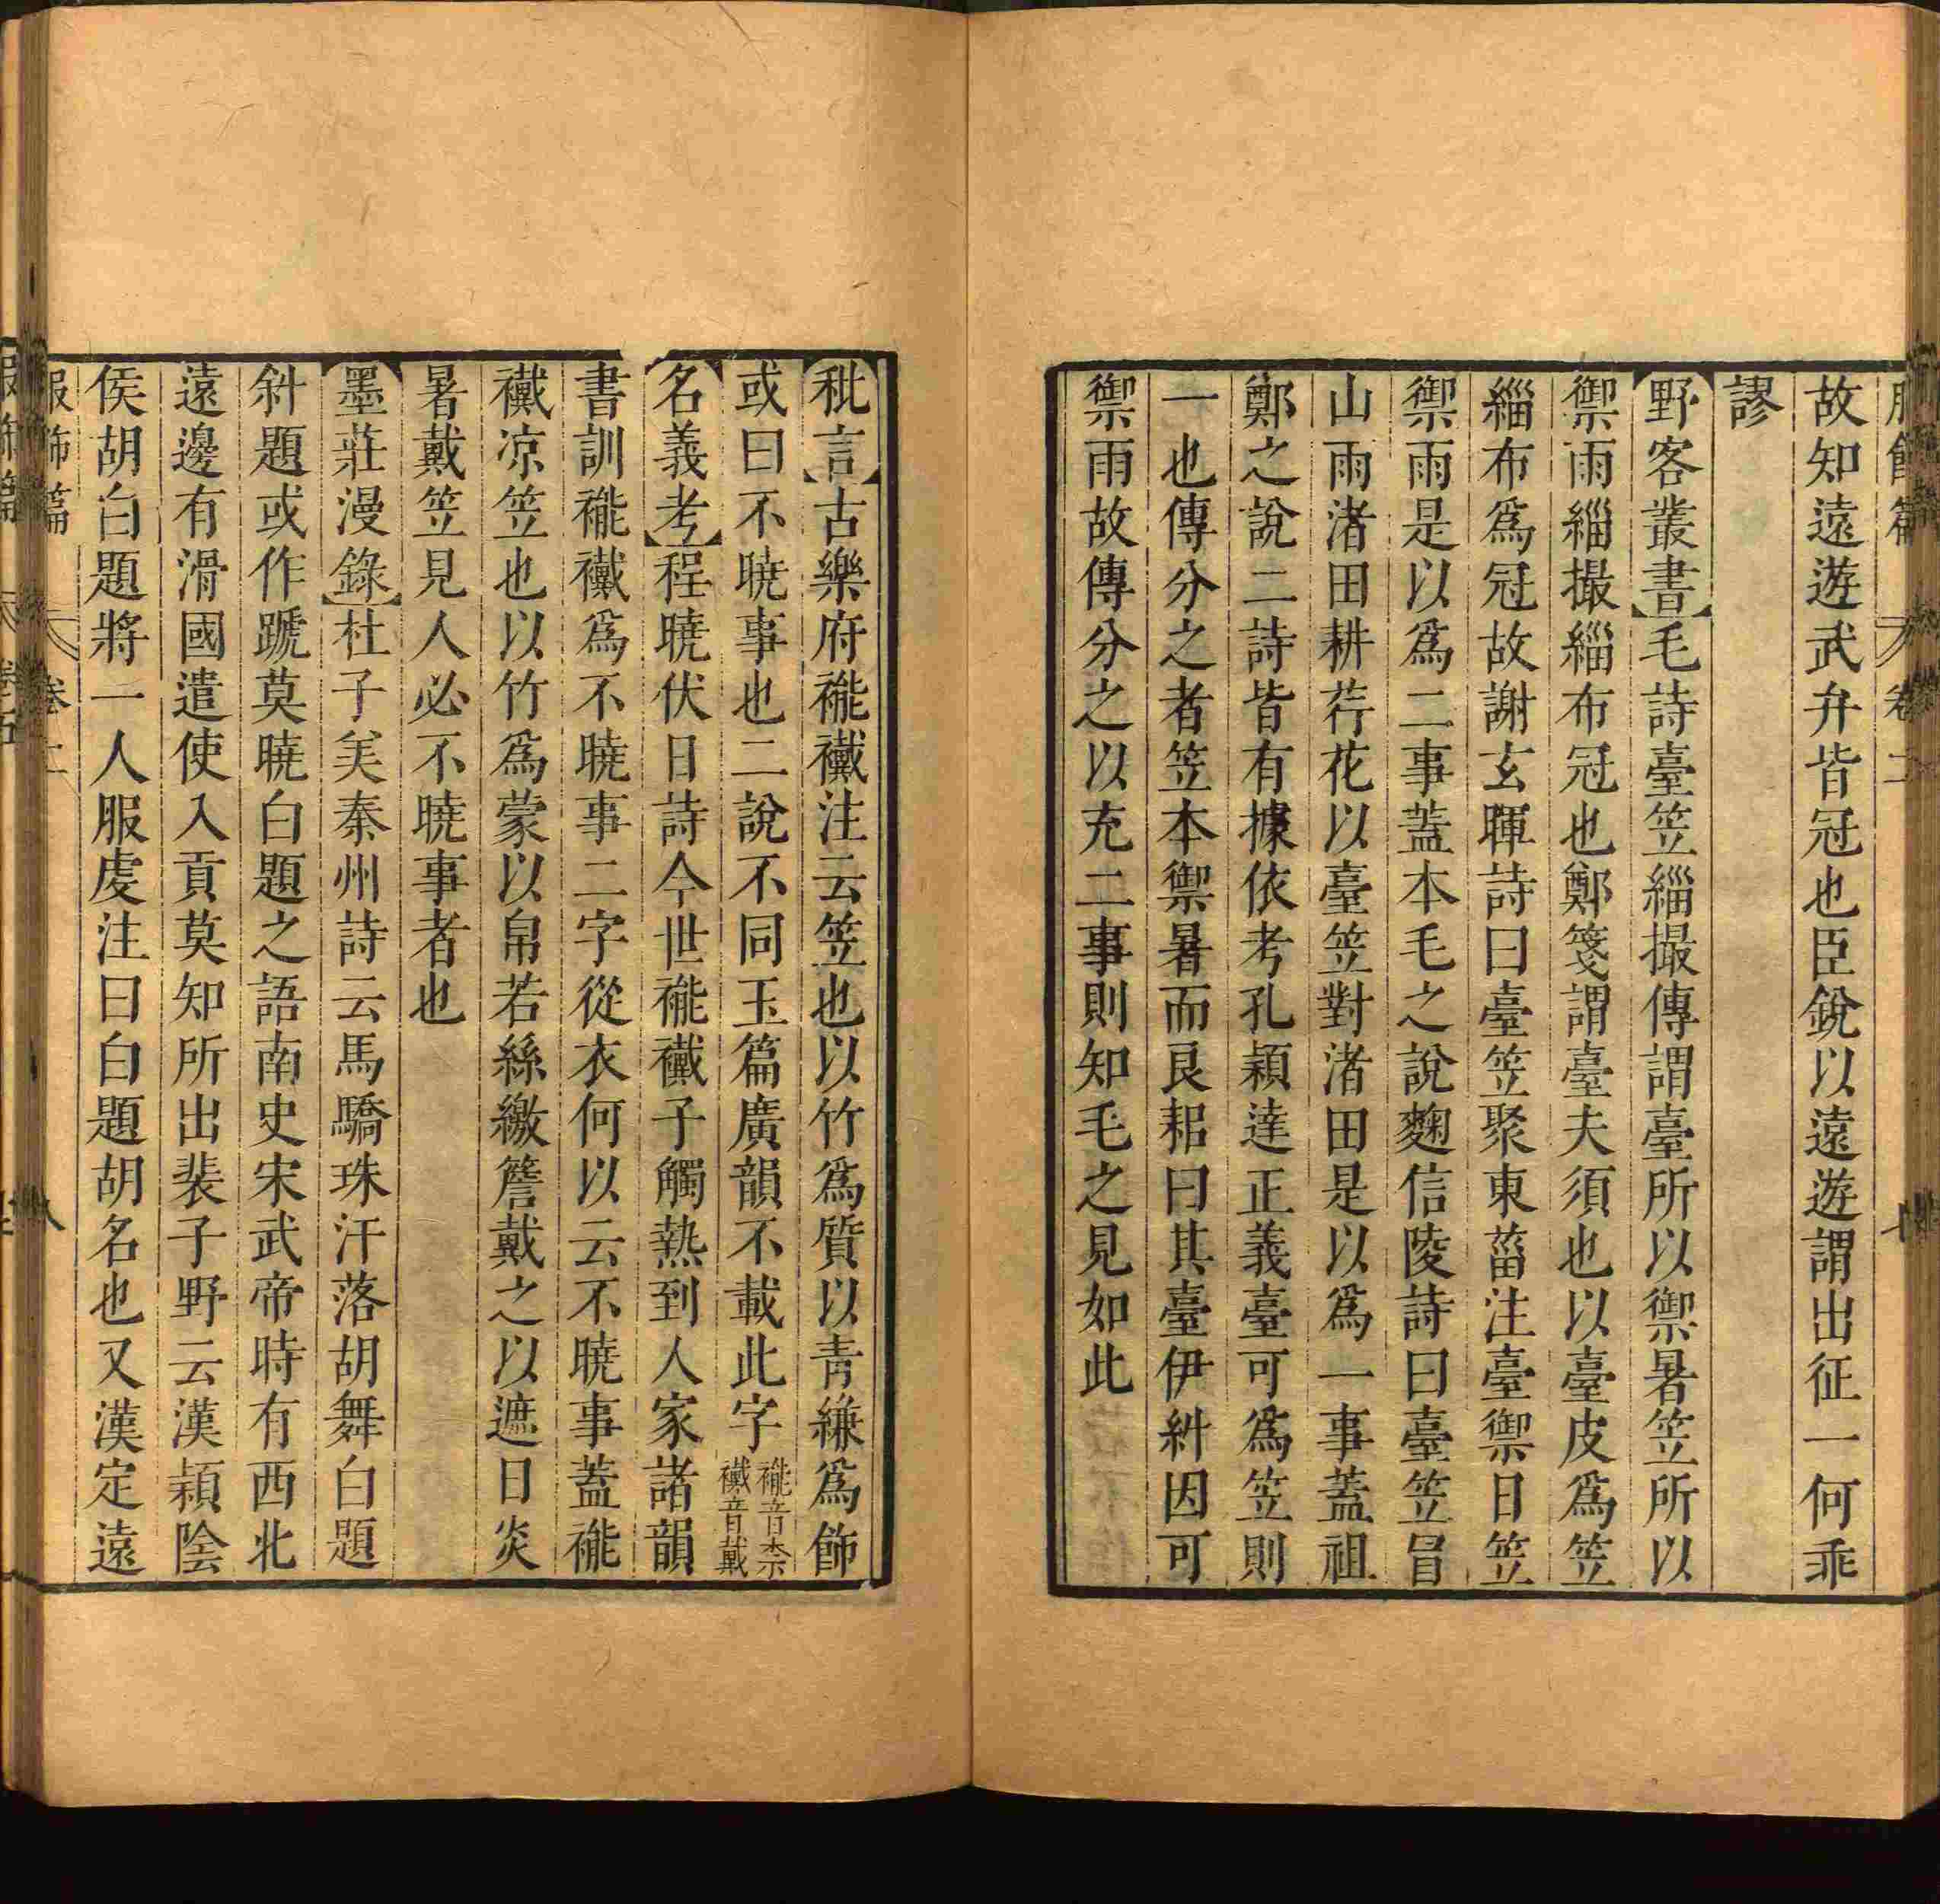 服飾篇 卷二
故知遠遊武弁皆冠也臣銳以遠遊謂出征一何乖
謬
野客叢書毛詩臺笠緇撮傳謂臺所以禦暑笠所以
禦雨緇撮緇布冠也鄭箋謂臺夫須也以臺皮爲笠
緇布爲冠故謝玄暉詩曰臺笠聚東菑注臺禦日笠
禦雨是以爲二事蓋本毛之說麴信陵詩曰臺笠冒
山雨渚田耕荇花以臺笠對渚田是以爲一事蓋祖
鄭之說二詩皆有據依考孔穎達正義臺可爲笠則
一也傳分之者笠本禦暑而良耜曰其臺伊糾因可
禦雨故傳分之以充二事則知毛之見如此
秕言古樂府褦襶注云笠也以竹爲質以青縑爲飾
或曰不曉事也二說不同玉篇廣韻不載此字褦音柰襶音戴
名義考程曉伏日詩今世褦襶子觸熱到人家諸韻
書訓褦襶爲不曉事二字從衣何以云不曉事蓋褦
襶凉笠也以竹爲蒙以帛若絲繳簷戴之以遮日炎
暑戴笠見人必不曉事者也
墨莊漫錄杜子美秦州詩云馬驕珠汗落胡舞白題
斜題或作蹏莫曉白題之語南史宋武帝時有西北
遠邊有滑國遣使入貢莫知所出裴子野云漢穎陰
侯胡白題將一人服虔注曰白題胡名也又漢定遠
服飾篇 卷二 八